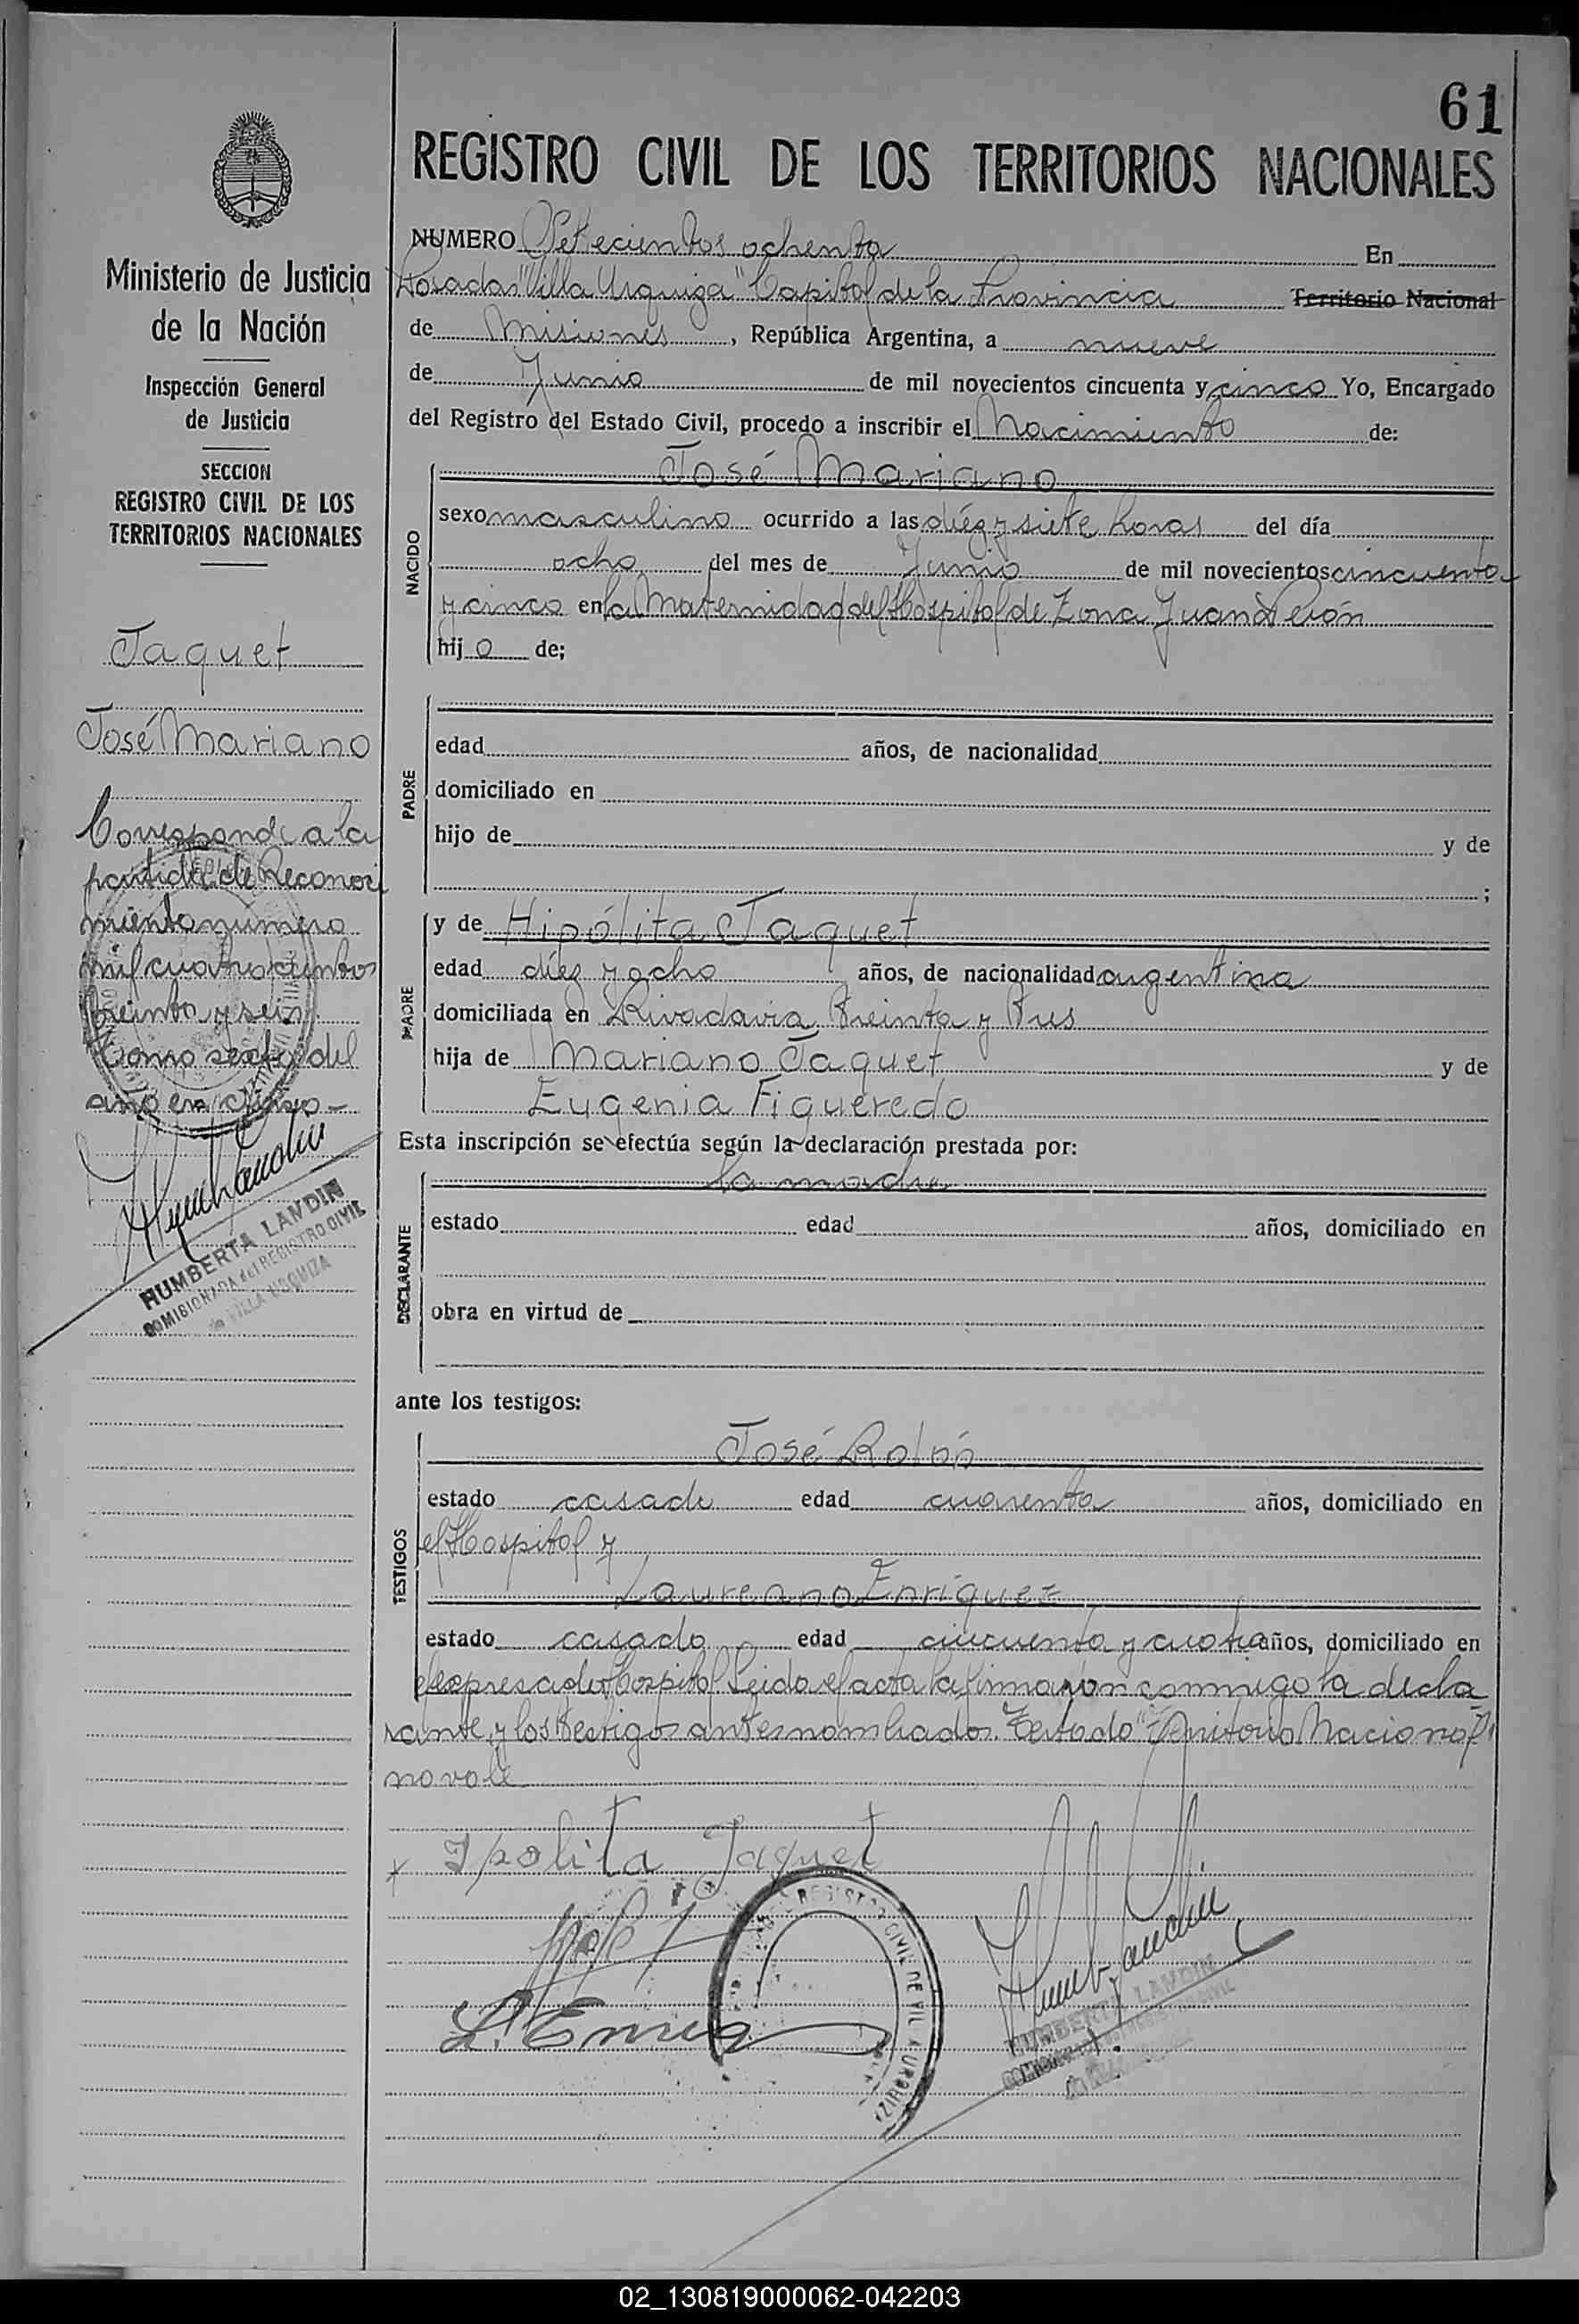 61
REGISTRO CIVIL DE LOS TERRITORIOS NACIONALES
Ministerio de Justicia
de la Nación
Inspección General
de Justicia
SECCION
REGISTRO CIVIL DE LOS
TERRITORIOS NACIONALES
Jaquet
José Mariano
Corresponde a la
partida de Reconoci
miento número
mil cuatrocientos
treinta y seis
tomo sexto del
año en curso-
HUMBERTA LANDIN
COMISIONADA del REGISTRO CIVIL
de VILLA URQUIZA
NUMERO Setecientos ochenta En
Posadas "Villa Urquiza" Capital de la Provincia Territorio Nacional
de Misiones, República Argentina, a nueve
de Junio de mil novecientos cincuenta y cinco Yo, Encargado
del Registro del Estado Civil, procedo a inscribir el Nacimiento de:
José Mariano
NACIDO
sexo masculino ocurrido a las diéz y siete horas del día
ocho del mes de Junio de mil novecientos cincuenta
y cinco en la Maternidad del Hospital de Zona Juan Perón
hijo de;
PADRE
edad años, de nacionalidad
domiciliado en
hijo de y de
;
MADRE
y de Hipólita Jaquet
edad diéz y ocho años, de nacionalidad argentina
domiciliada en Rivadavia treinta y tres
hija de Mariano Jaquet y de
Eugenia Figueredo
Esta inscripción se efectúa según la declaración prestada por:
la madre
DECLARANTE
estado edad años, domiciliado en
obra en virtud de
ante los testigos:
TESTIGOS
José Rolón
estado casado edad cuarenta años, domiciliado en
el Hospital y
Laureano Enríquez
estado casado edad cincuenta y cuatro años, domiciliado en
el expresado Hospital. Leida el acta la firmaron conmigo la decla
rante y los testigos antes nombrados. Testado "Territorio Nacional"
no vale
x Ipolita Jaquet
REGISTRO CIVIL DE VILLA URQUIZA
HUMBERTA LANDIN
02_130819000062-042203